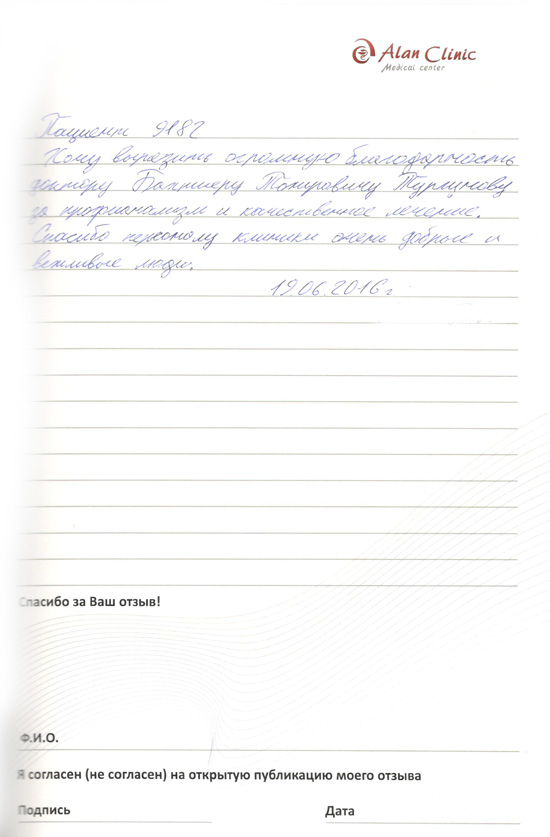 Alan Clinic
Medical center
Пациент 9182
Хочу выразить огромную благодарность
доктору Бахтиеру Тохировичу Турсунову
за профианализм и качественное лечение.
Спасибо персоналу клиники очень добрые и
вежливые люди.
19.06.2016 г
Спасибо за Ваш отзыв!
Ф.И.О.
Я согласен (не согласен) на открытую публикацию моего отзыва
Подпись Дата